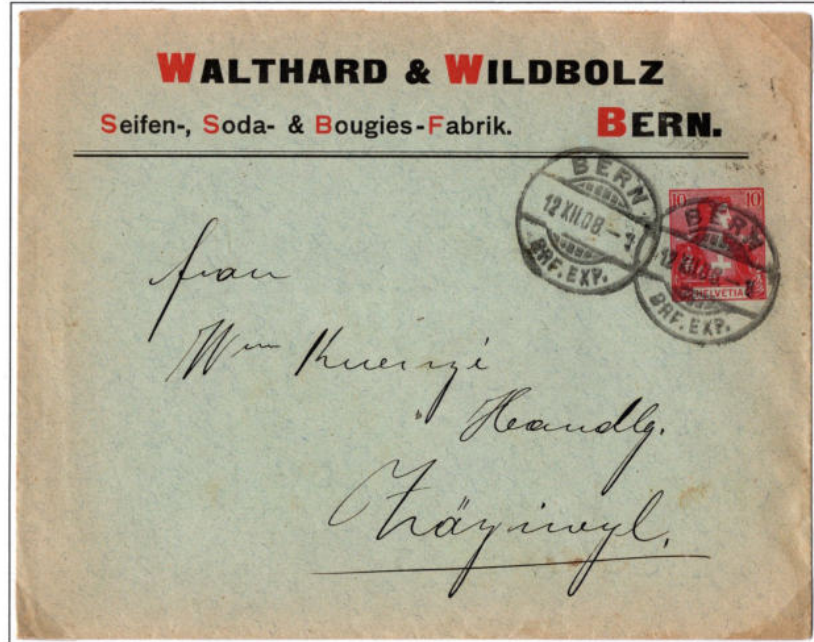 WALTHARD & WILDBOLZ
Seifen-, Soda- & Bougies-Fabrik. BERN.
BERN
12 XII.08.-
BRF. EXP.
10 10
HELVETIA
BERN
12 XII.08.-
BRF. EXP.
Frau
Wwe Kuenzi
Handlg.
Zäziwyl.